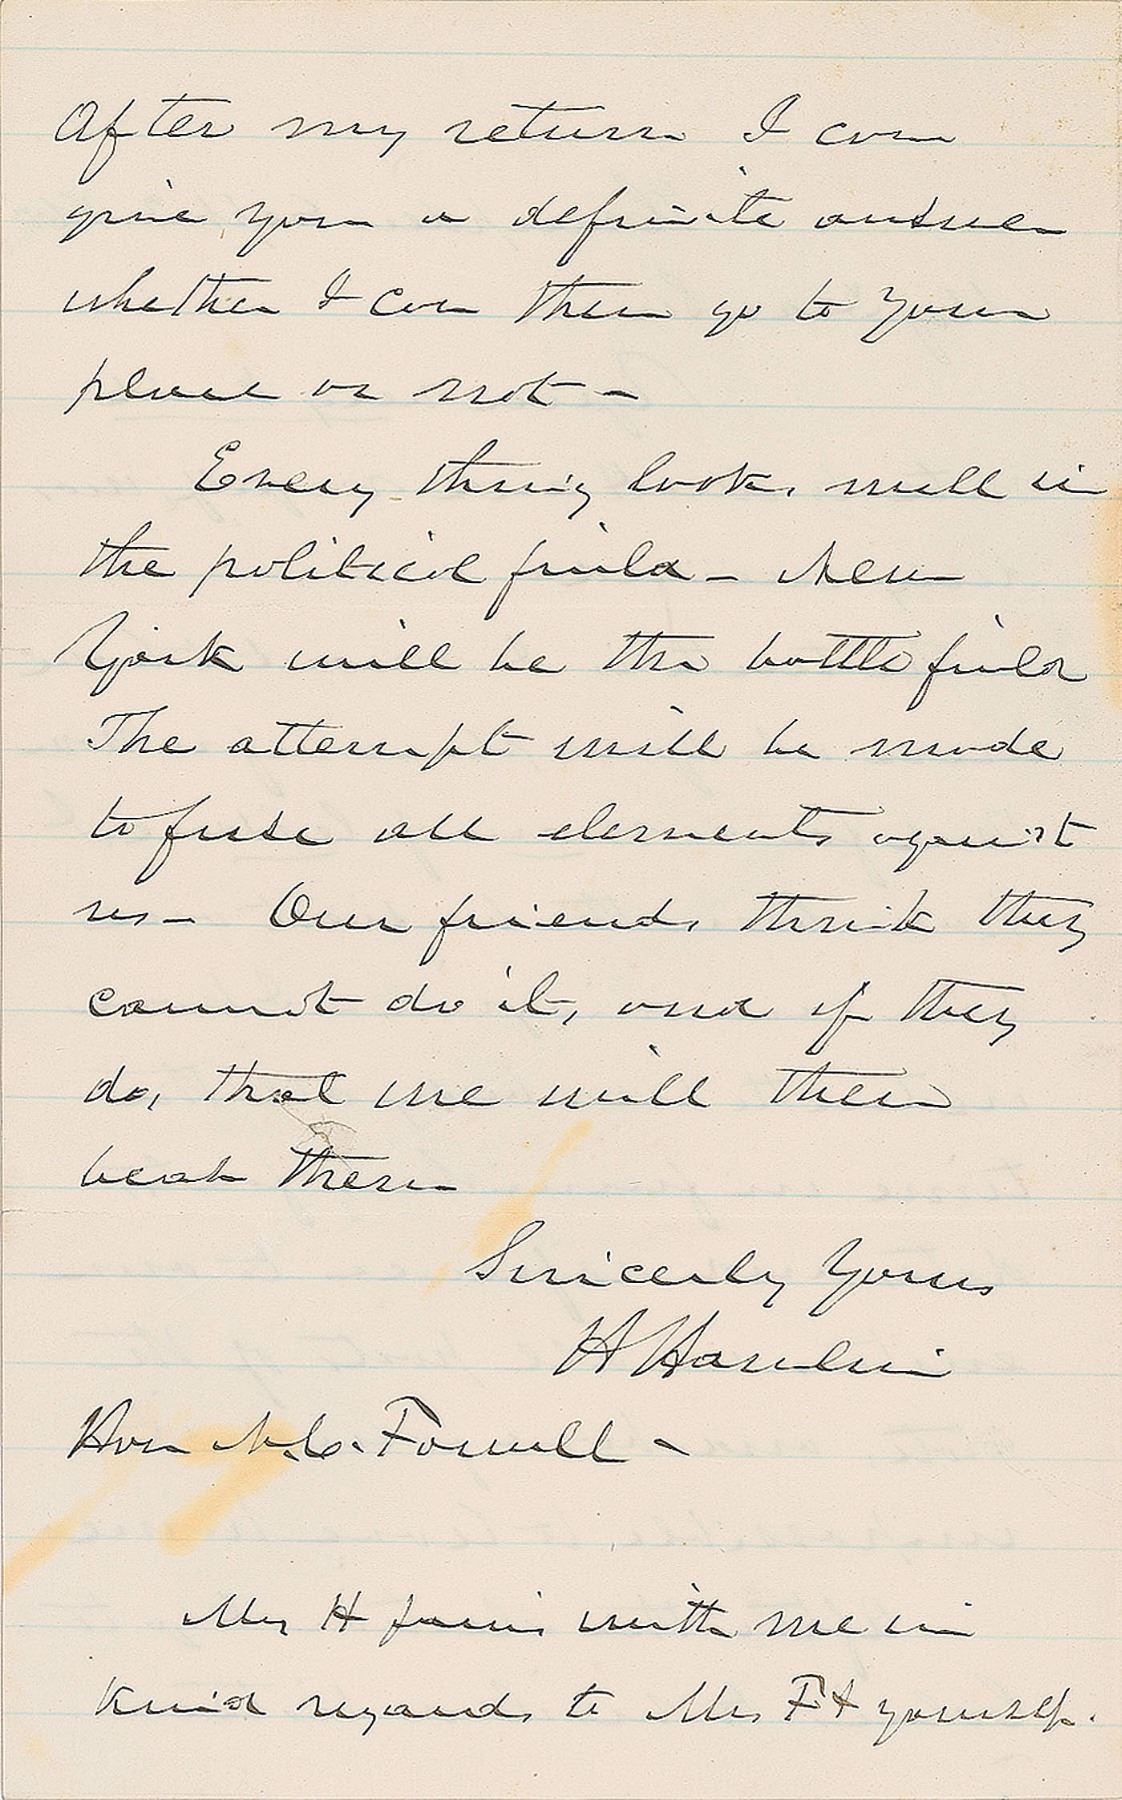 After my return I can
give you a definite answer
whether I can then go to your
place or not –
Every thing looks well in
the political field – New
York will be the battle field
The attempt will be made
to fuse all elements against
us – Our friends think they
cannot do it, and if they
do, that we will then
beat them
Sincerely Yours
H Hamlin
Hon N. C. Farwell –
Mrs H joins with me in
kind regards to Mrs F & yourself.